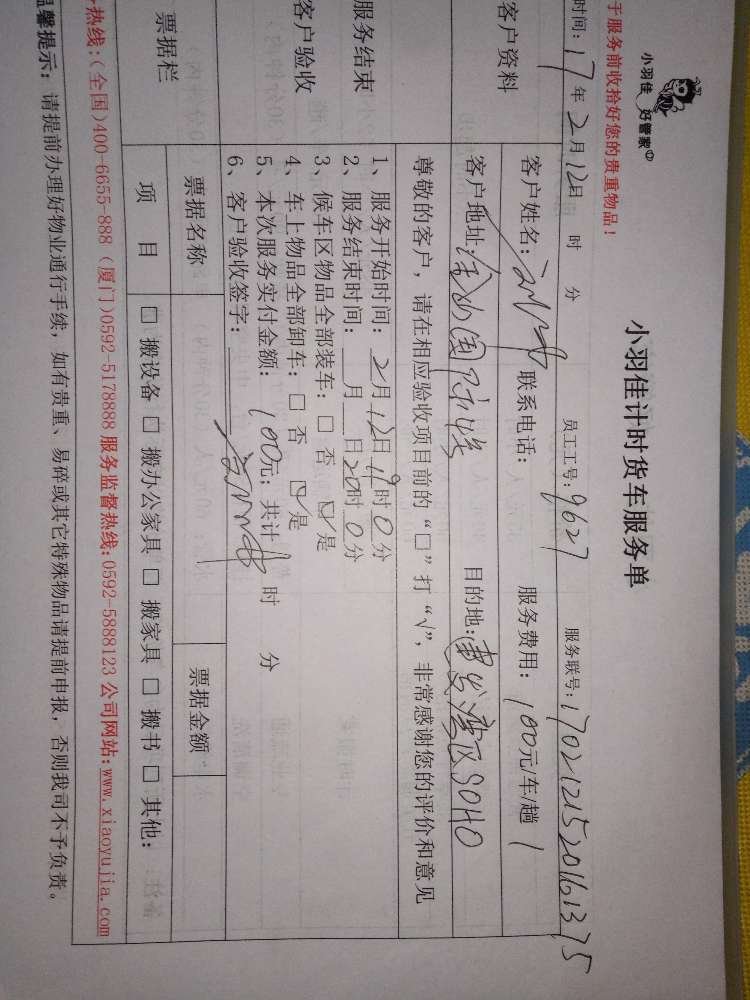 小羽佳 好管家
于服务前收拾好您的贵重物品!
小羽佳计时货车服务单
时间: 17年2月12日 时 分 员工工号: 9627 服务联号: 1702121520161375
客户资料
客户姓名: 联系电话: 服务费用: 100元/车/趟 1
客户地址: 国际 目的地: SOHO
尊敬的客户,请在相应验收项目前的“□”打“√”,非常感谢您的评价和意见
服务结束
客户验收
1、服务开始时间: 2月12日19时0分
2、服务结束时间: 月 日20时0分
3、候车区物品全部装车: □ 否 ☑ 是
4、车上物品全部卸车: □ 否 ☑ 是
5、本次服务实付金额: 100元; 共计 时 分
6、客户验收签字:
票据栏
票据名称 票据金额
项 目 □ 搬设备 □ 搬办公家具 □ 搬家具 □ 搬书 □ 其他:
热线:(全国)400-6655-888 (厦门)0592-5178888 服务监督热线:0592-5888123 公司网站:www.xiaoyujia.com
温馨提示: 请提前办理好物业通行手续,如有贵重、易碎或其它特殊物品请提前申报,否则我司不予负责。